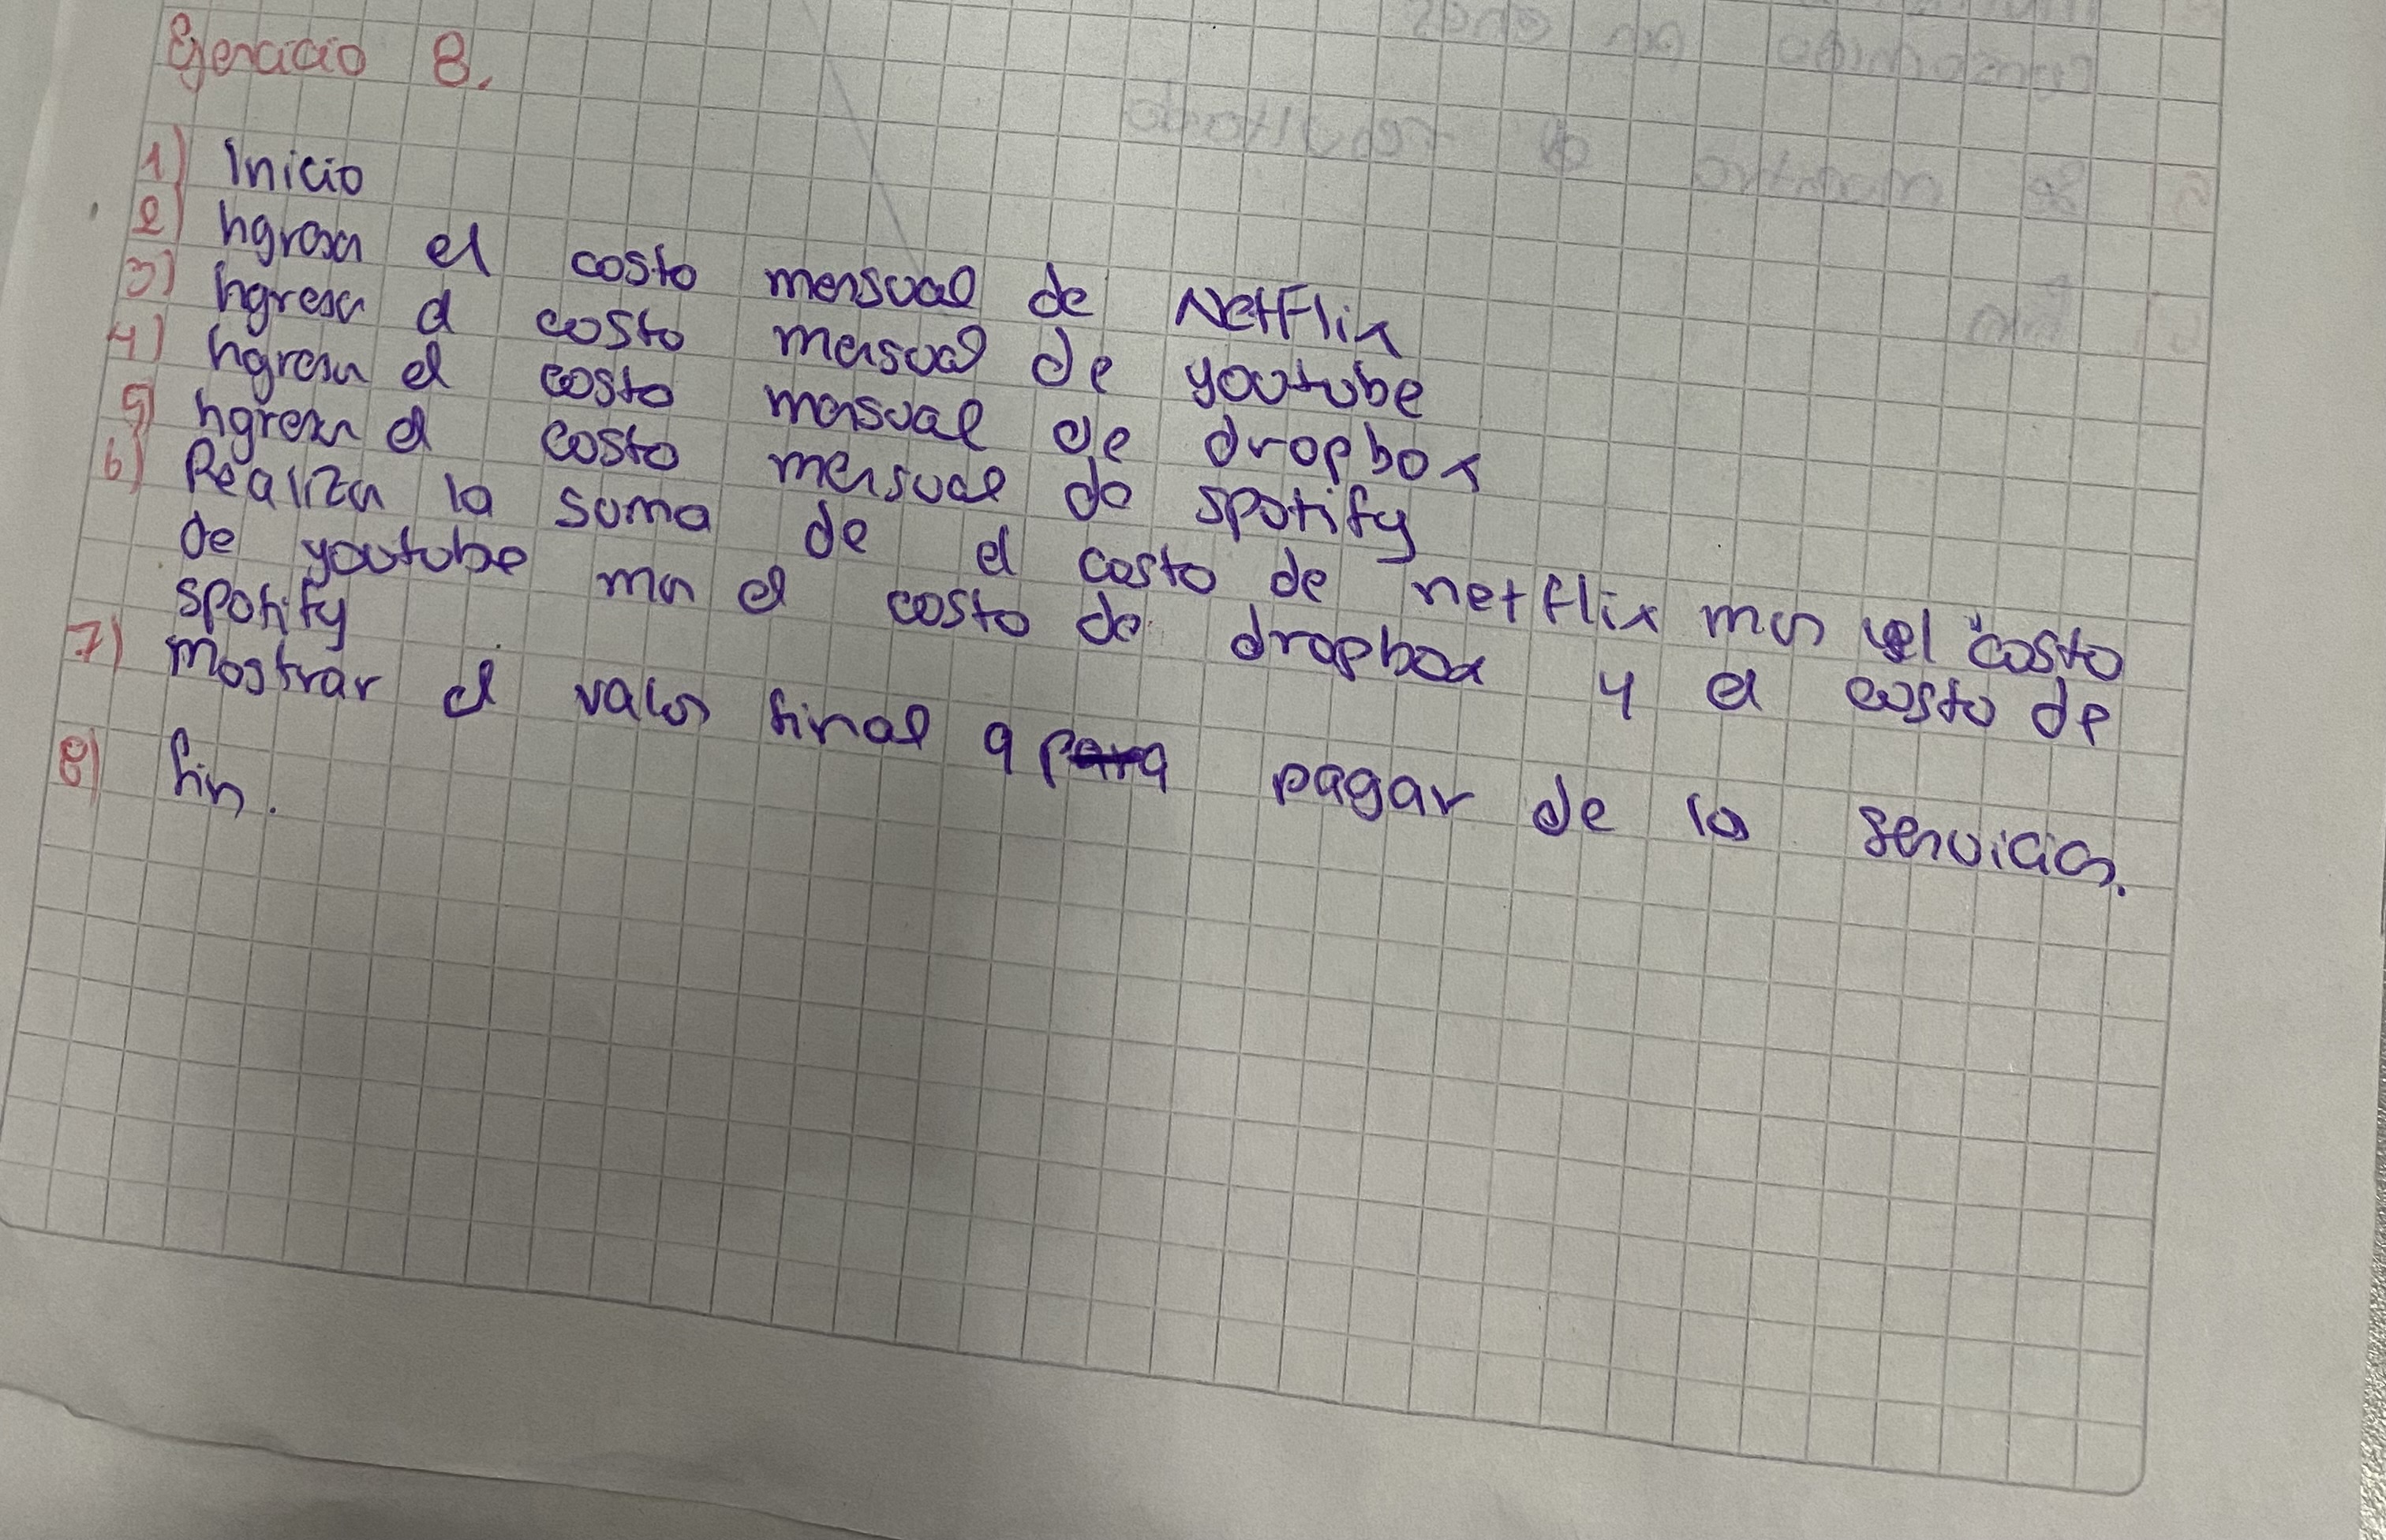 Ejercicio 8.
1) Inicio
2) Ingresa el costo mensual de NetFlix
3) Ingresa el costo mensual de youtube
4) Ingresa el costo mensual de dropbox
5) Ingresa el costo mensual de spotify
6) Realiza la suma de el costo de netflix mas el costo
de youtube mas el costo de dropbox y el costo de
spotify
7) Mostrar el valor final a pagar de los servicios.
8) fin.